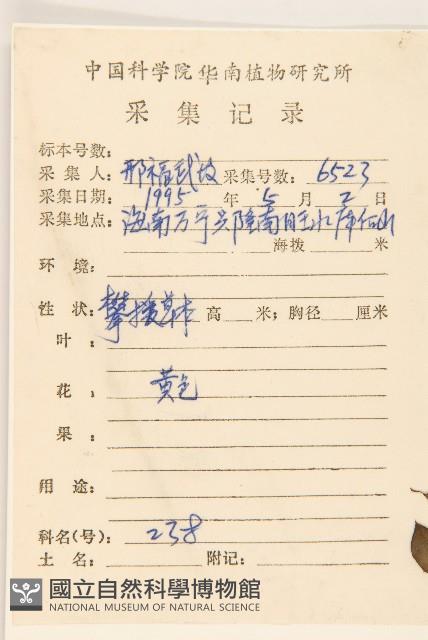 中国科学院华南植物研究所
采集记录
标本号数:
采集人: 邢福武 采集号数: 6523
采集日期: 1995年5月2日
采集地点: 海南万宁兴隆南旺水库后山
海拨 米
环境:
性状: 攀援草本 高 米; 胸径 厘米
叶:
花: 黄色
果:
用途:
科名(号): 238
土名: 附记:
國立自然科學博物館
NATIONAL MUSEUM OF NATURAL SCIENCE